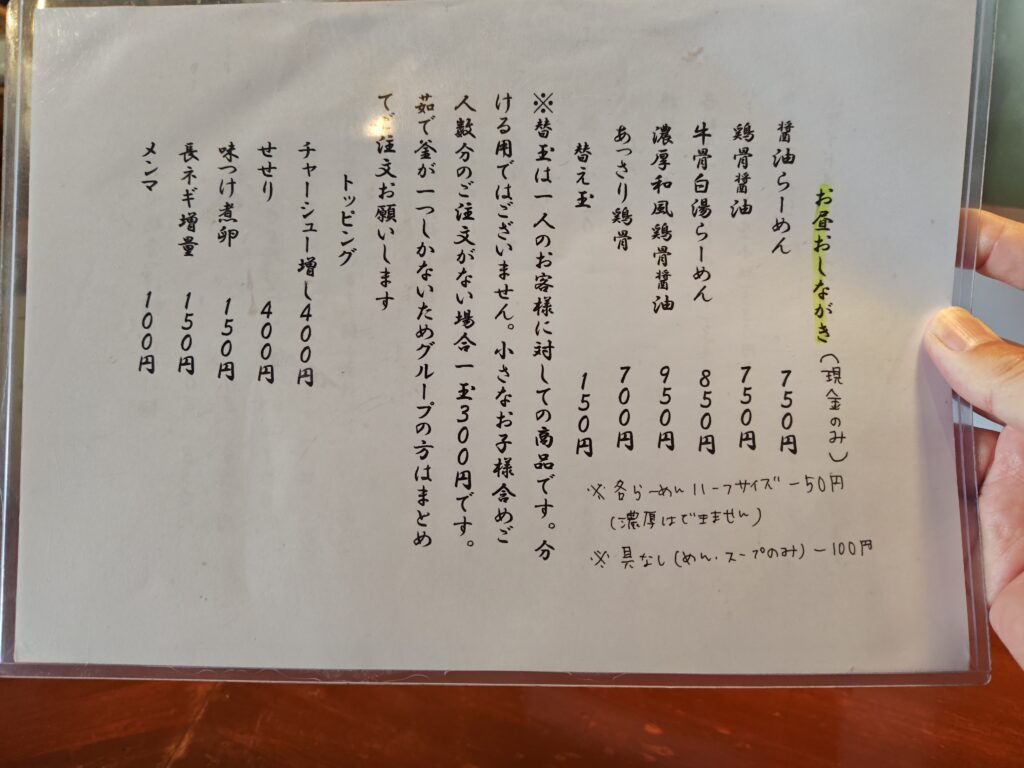 お昼おしながき(現金のみ)
醤油らーめん 750円
鶏骨醤油 750円
牛骨白湯らーめん 850円
濃厚和風鶏骨醤油 950円
あっさり鶏骨 700円
替え玉 150円
※各らーめんハーフサイズ-50円
(濃厚はできません)
※具なし(めん・スープのみ)-100円
※替玉は一人のお客様に対しての商品です。分
ける用ではございません。小さなお子様含めご
人数分のご注文がない場合一玉300円です。
茹で釜が一つしかないためグループの方はまとめ
てご注文お願いします
トッピング
チャーシュー増し400円
せせり 400円
味つけ煮卵 150円
長ネギ増量 150円
メンマ 100円